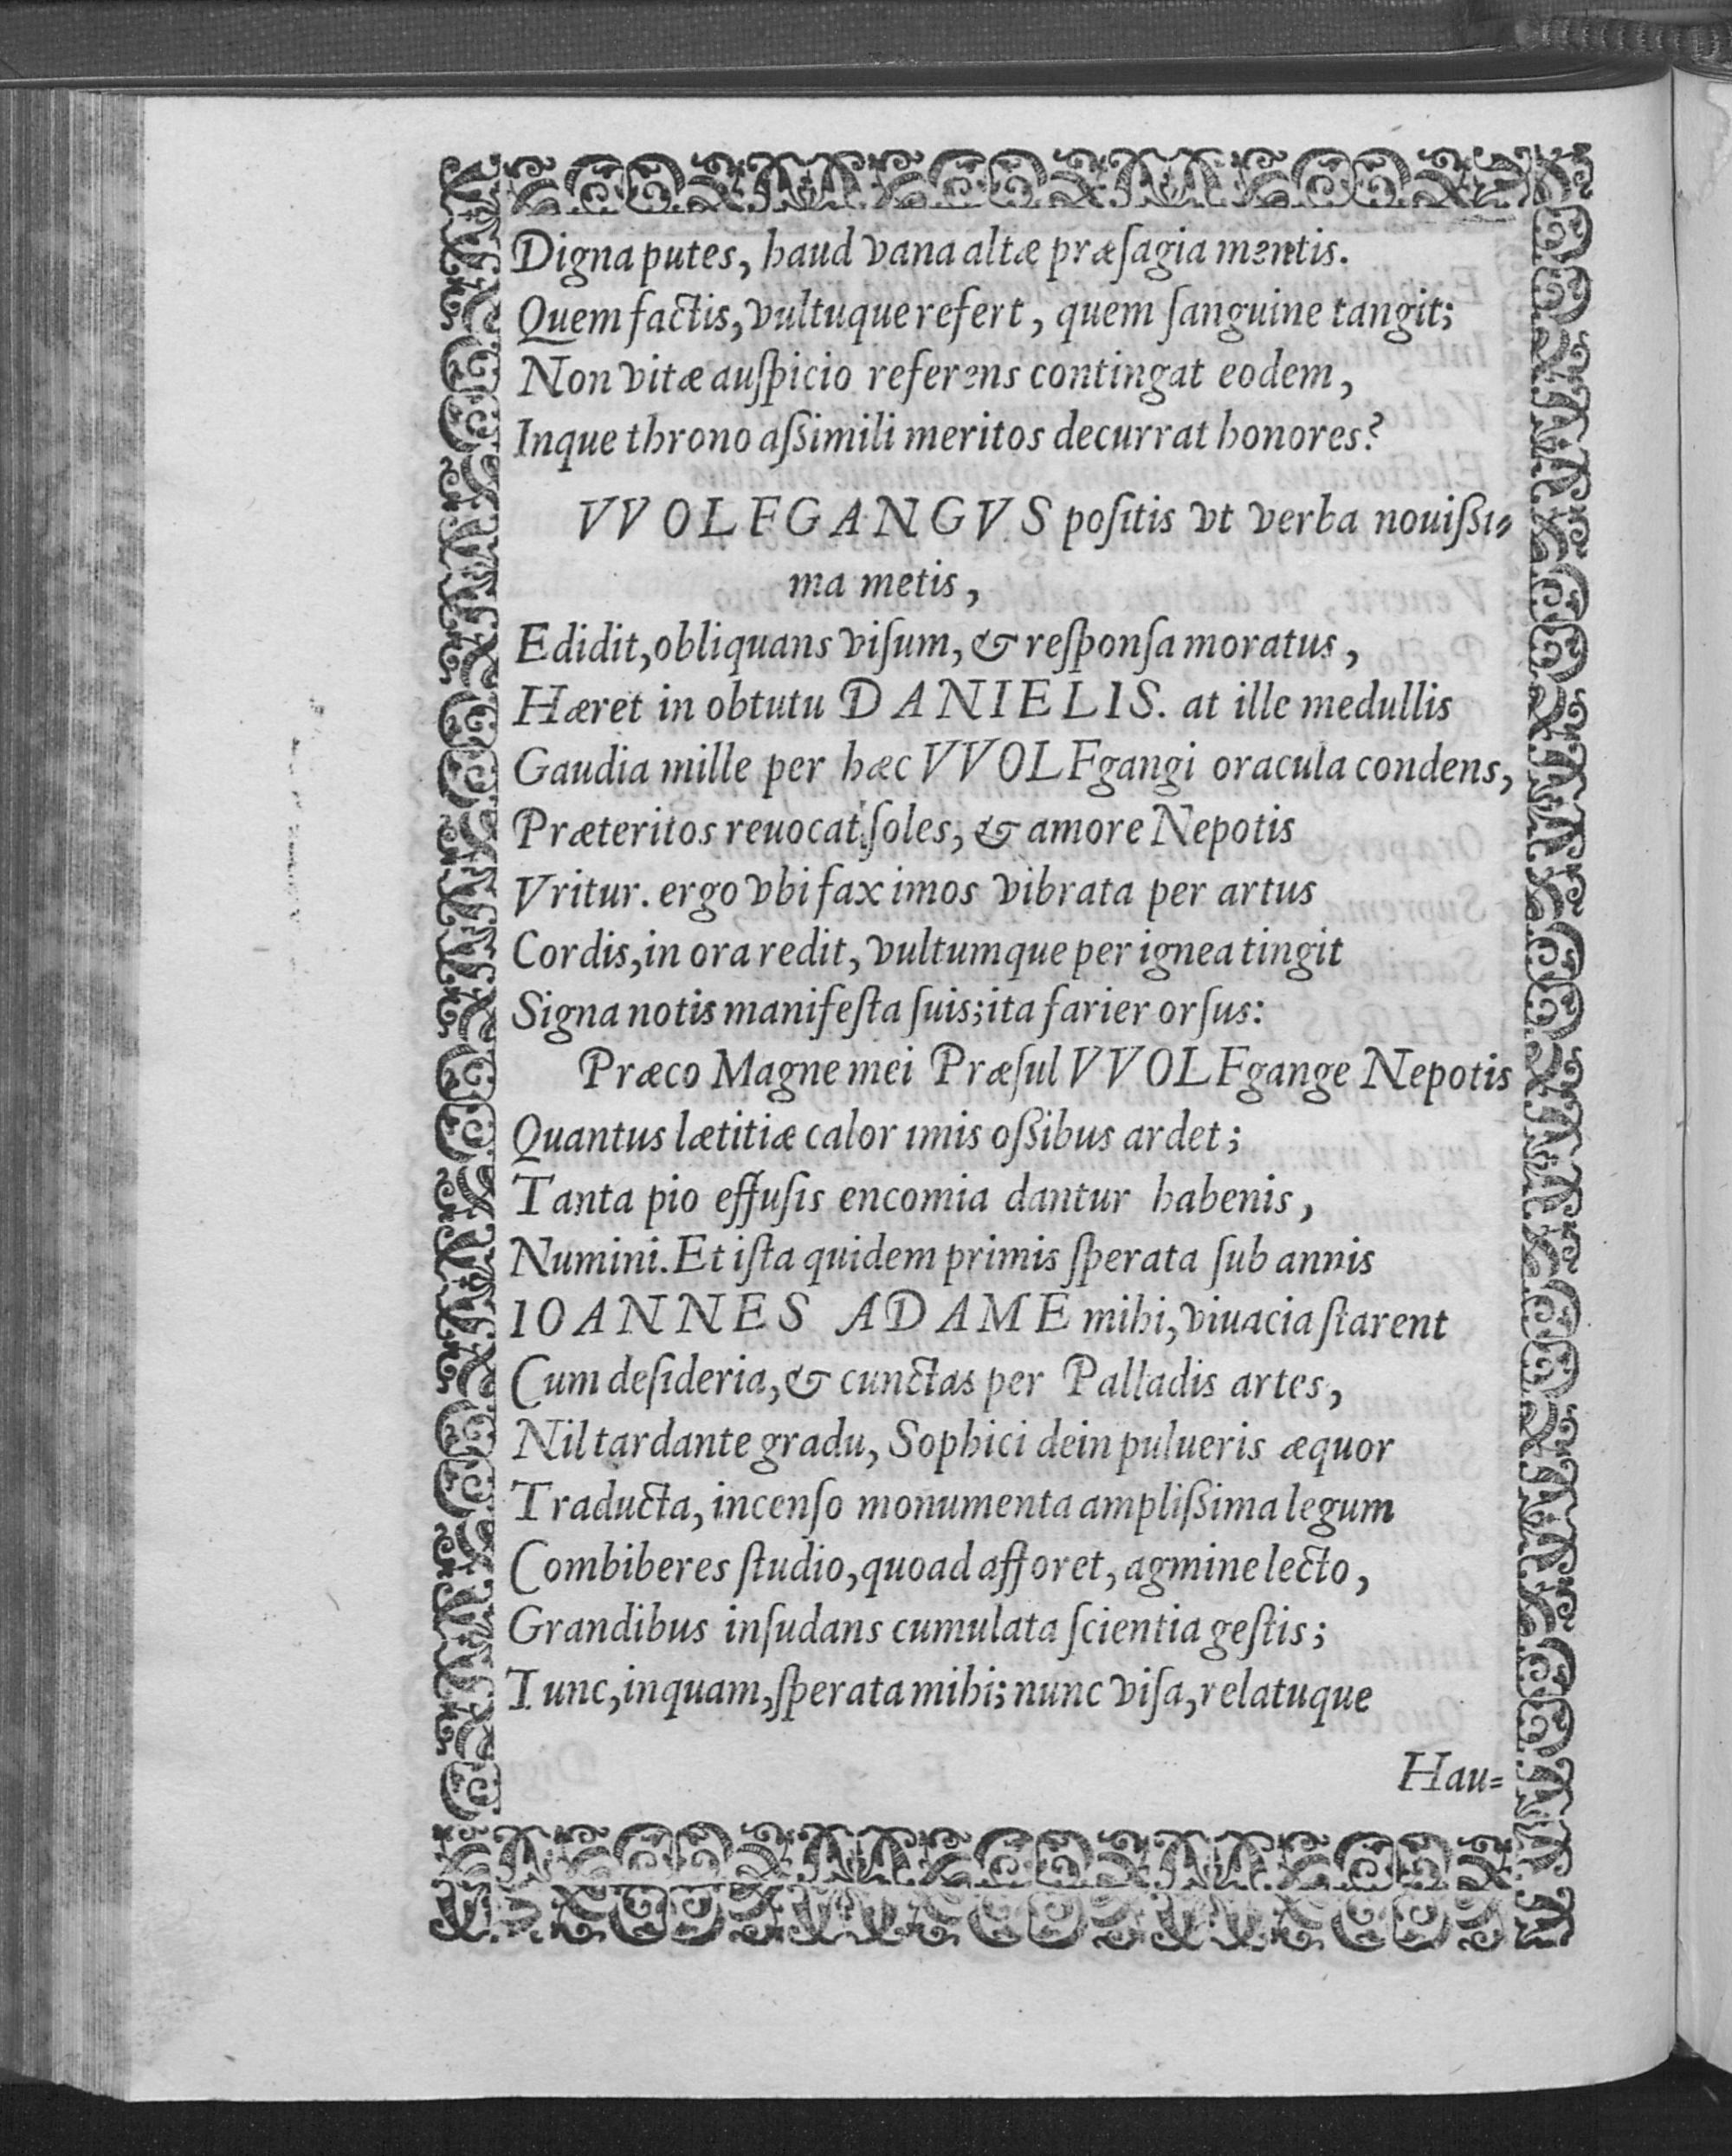 Digna putes, haud vana altæ præſagia mentis.
Quem factis, vultuque refert, quem ſanguine tangit;
Non vitæ auſpicio referens contingat eodem,
Inque throno aſsimili meritos decurrat honores?
VVOLFGANGVS poſitis vt verba nouiſsi-
ma metis,
Edidit, obliquans viſum, & reſponſa moratus,
Hæret in obtutu DANIELIS. at ille medullis
Gaudia mille per hæc VVOLFgangi oracula condens,
Præteritos reuocat ſoles, & amore Nepotis
Vritur. ergo vbi fax imos vibrata per artus
Cordis, in ora redit, vultumque per ignea tingit
Signa notis manifeſta ſuis; ita farier orſus:
Præco Magne mei Præſul VVOLFgange Nepotis
Quantus lætitiæ calor imis oſsibus ardet;
Tanta pio effuſis encomia dantur habenis,
Numini. Et iſta quidem primis ſperata ſub annis
IOANNES ADAME mihi, viuacia ſtarent
Cum deſideria, & cunctas per Palladis artes,
Nil tardante gradu, Sophici dein pulueris æquor
Traducta, incenſo monumenta ampliſsima legum
Combiberes ſtudio, quoad afforet, agmine lecto,
Grandibus inſudans cumulata ſcientia geſtis;
Tunc, inquam, ſperata mihi; nunc viſa, relatuque
Hau-